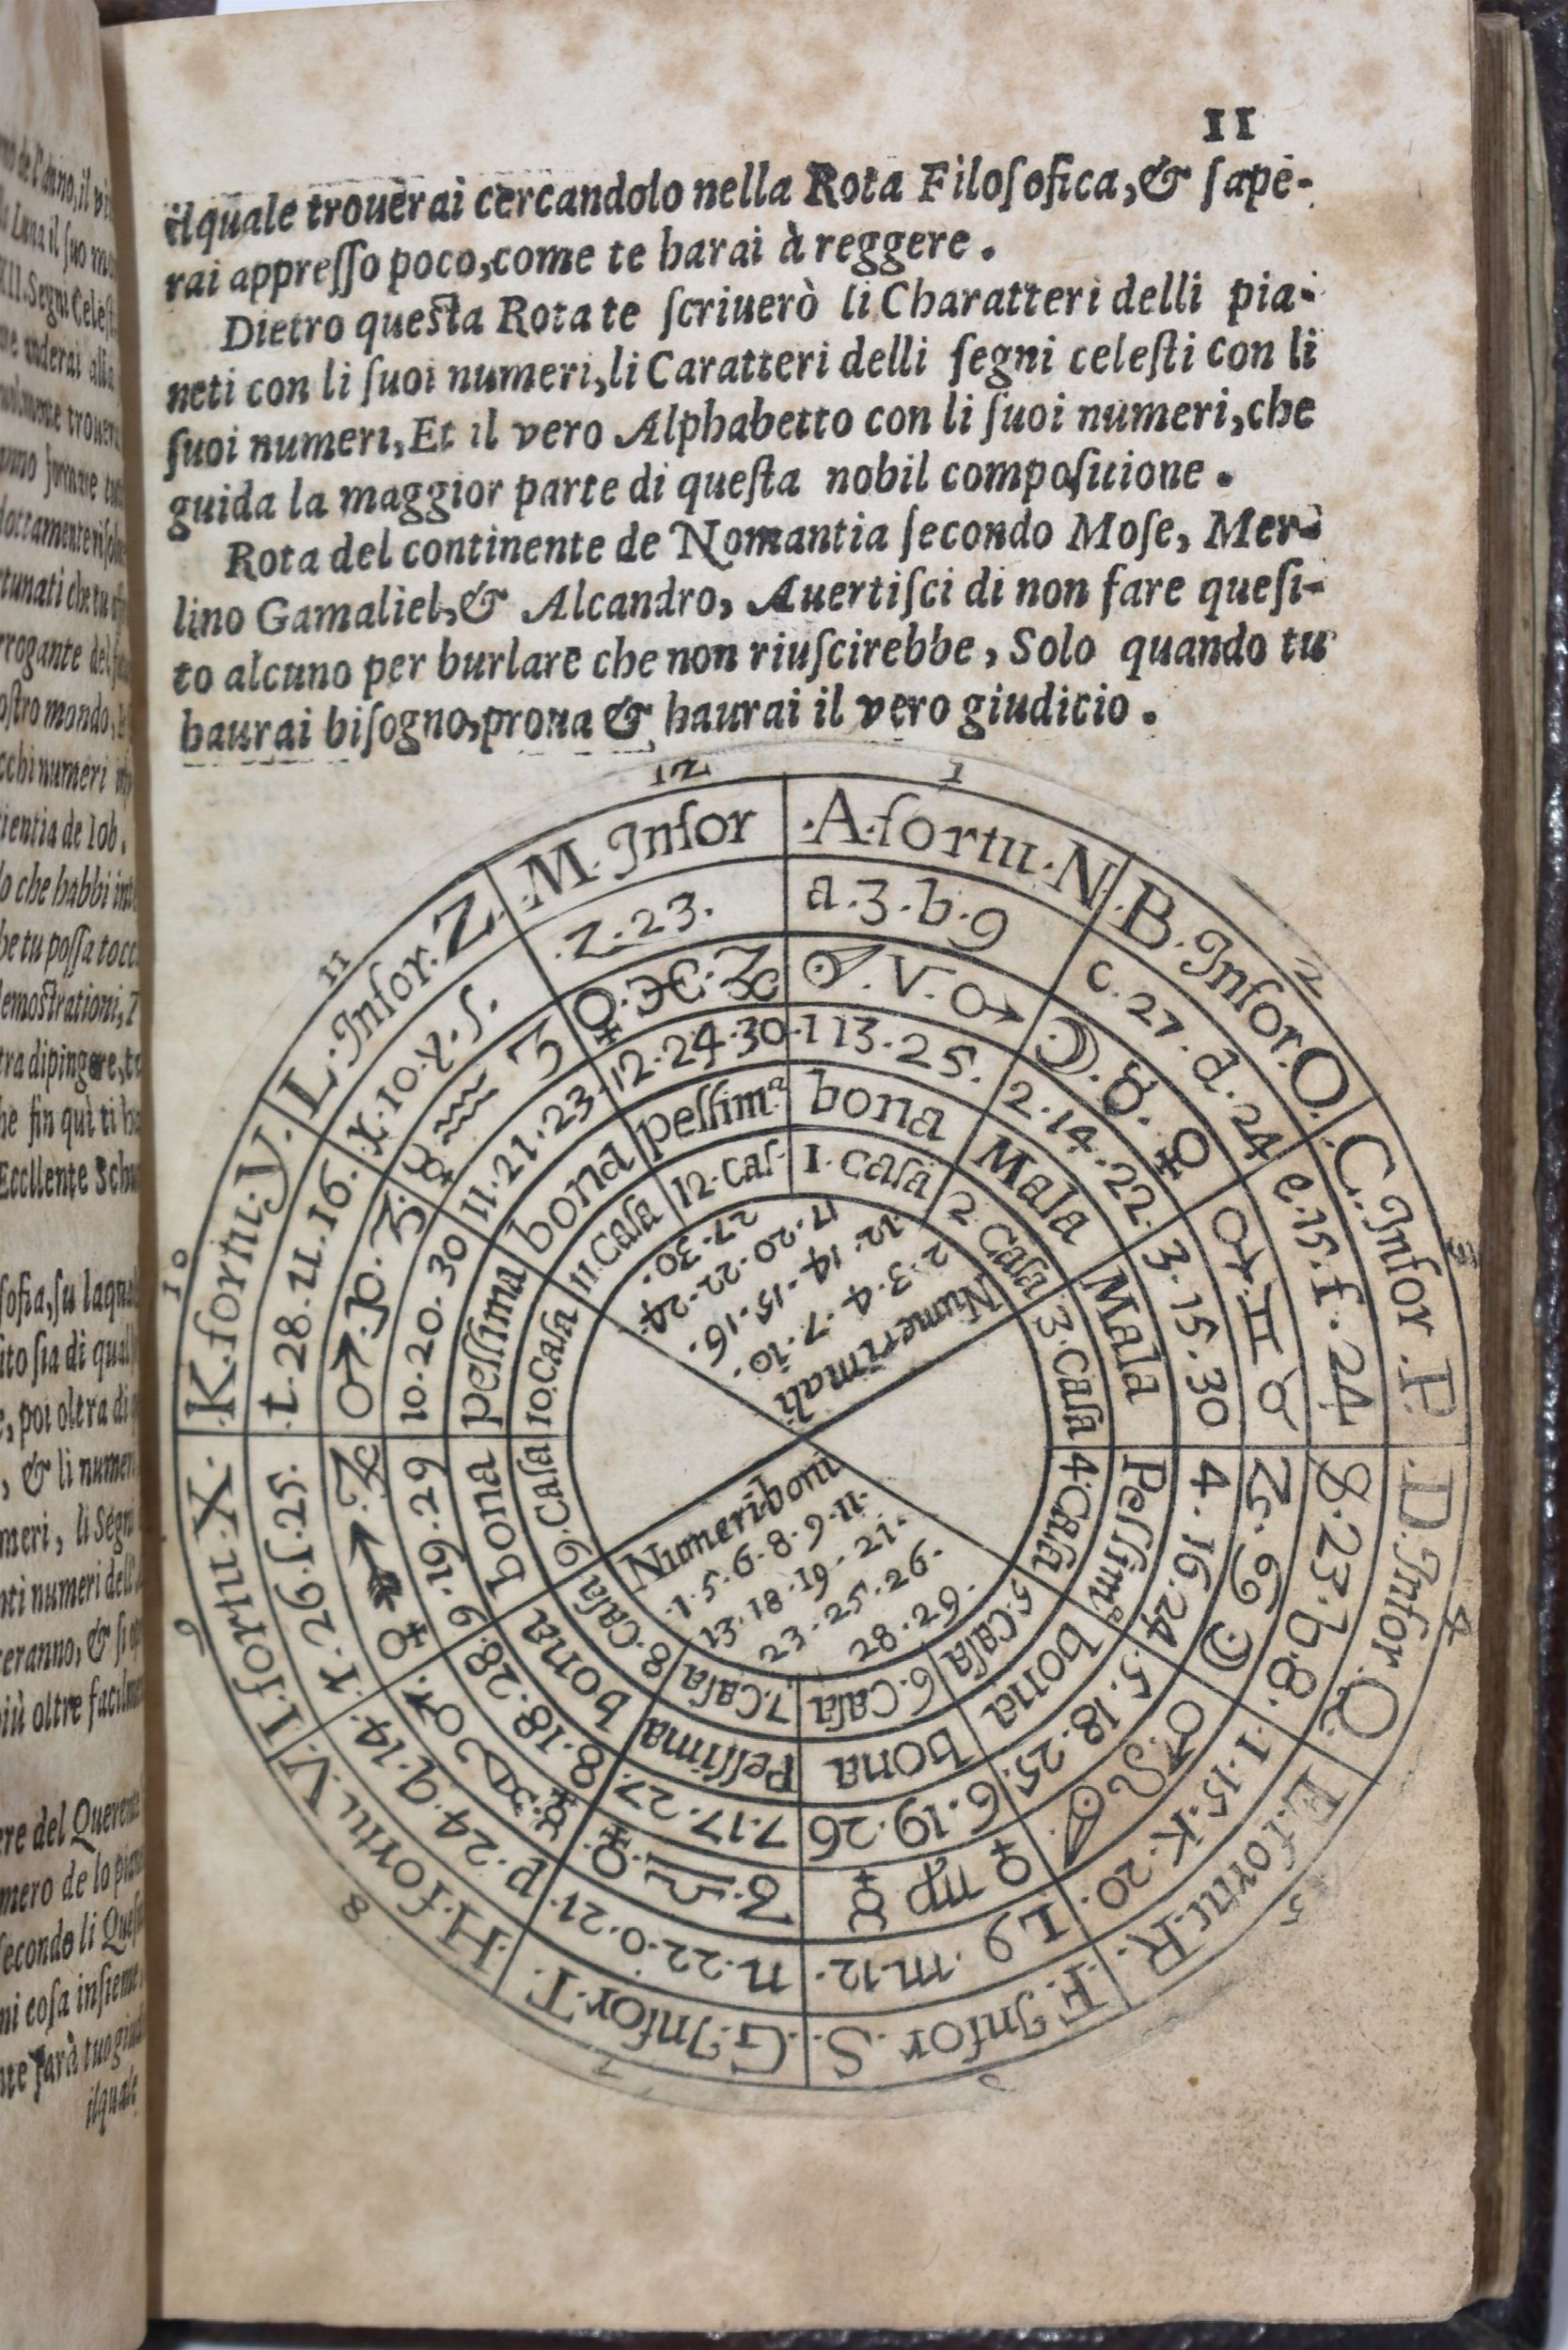 11
ilquale trouerai cercandolo nella Rota Filoſofica,& ſape-
rai appreſſo poco,come te harai à reggere.
Dietro queſta Rota te ſcriuerò li Charatteri delli pia-
neti con li ſuoi numeri,li Caratteri delli ſegni celeſti con li
ſuoi numeri,Et il vero Alphabetto con li ſuoi numeri,che
guida la maggior parte di queſta nobil compoſitione.
Rota del continente de Nomantia ſecondo Moſe, Mer-
lino Gamaliel,& Alcandro, Auertiſci di non fare queſi-
to alcuno per burlare che non riuſcirebbe, Solo quando tu
haurai biſogno,proua & haurai il vero giudicio.
1
.A.fortu.N
a.3.b.9
☉.V.♂
1 13.25.
bona
1.caſa
2
.B.Infor.O.
c.27.d.24
☽.♉.♀
2.14.22.
Mala
2 caſa
3
C.Infor.P.
e.15.f.24
♂.♊ ♉
3.15.30
Mala
3.caſa
4
.D.Infor.Q.
g.23.h.8.
♃.♋ ☽
4.16.24
Peſſimª
4 caſa
5
E.fortu.R.
1.15.K.20.
♂.♌ ☉
5.18.25
bona
5.caſa
.F.Infor.S.
L9.m.12.
♀ ♍ ☿
6.19.26
bona
6.caſa
7
.G.Infor.T.
n.22.o.21.
3.♎.♀
7.17.27.
Peſſima
7.caſa
8
.H.fortu.V.
p.24.q.14.
8.18.28.
bona
8.caſa
9
I.fortu.X.
r.26.ſ.25.
♀ ♐ ♃
9.19.29
bona
9.caſa
10
.K.fortu.Y.
.t.28.u.16.
♂.♑.3.
10.20.30
peſſima
10.caſa
11
L.Infor.Z.
x.10.y.ſ.
☿ ♒ 3
11.21.23.
bona
11.caſa
12
.M.Infor
.Z.23.
♀.♓.♃
12.24.30
peſſimª
12.caſ.
Numeri mali
2.3.4.7.10.
12.14.15.16.
17.20.22.24.
27.30.
Numeri boni
.1.5.6.8.9.11.
13.18.19.21.
23.25.26.
28.29.